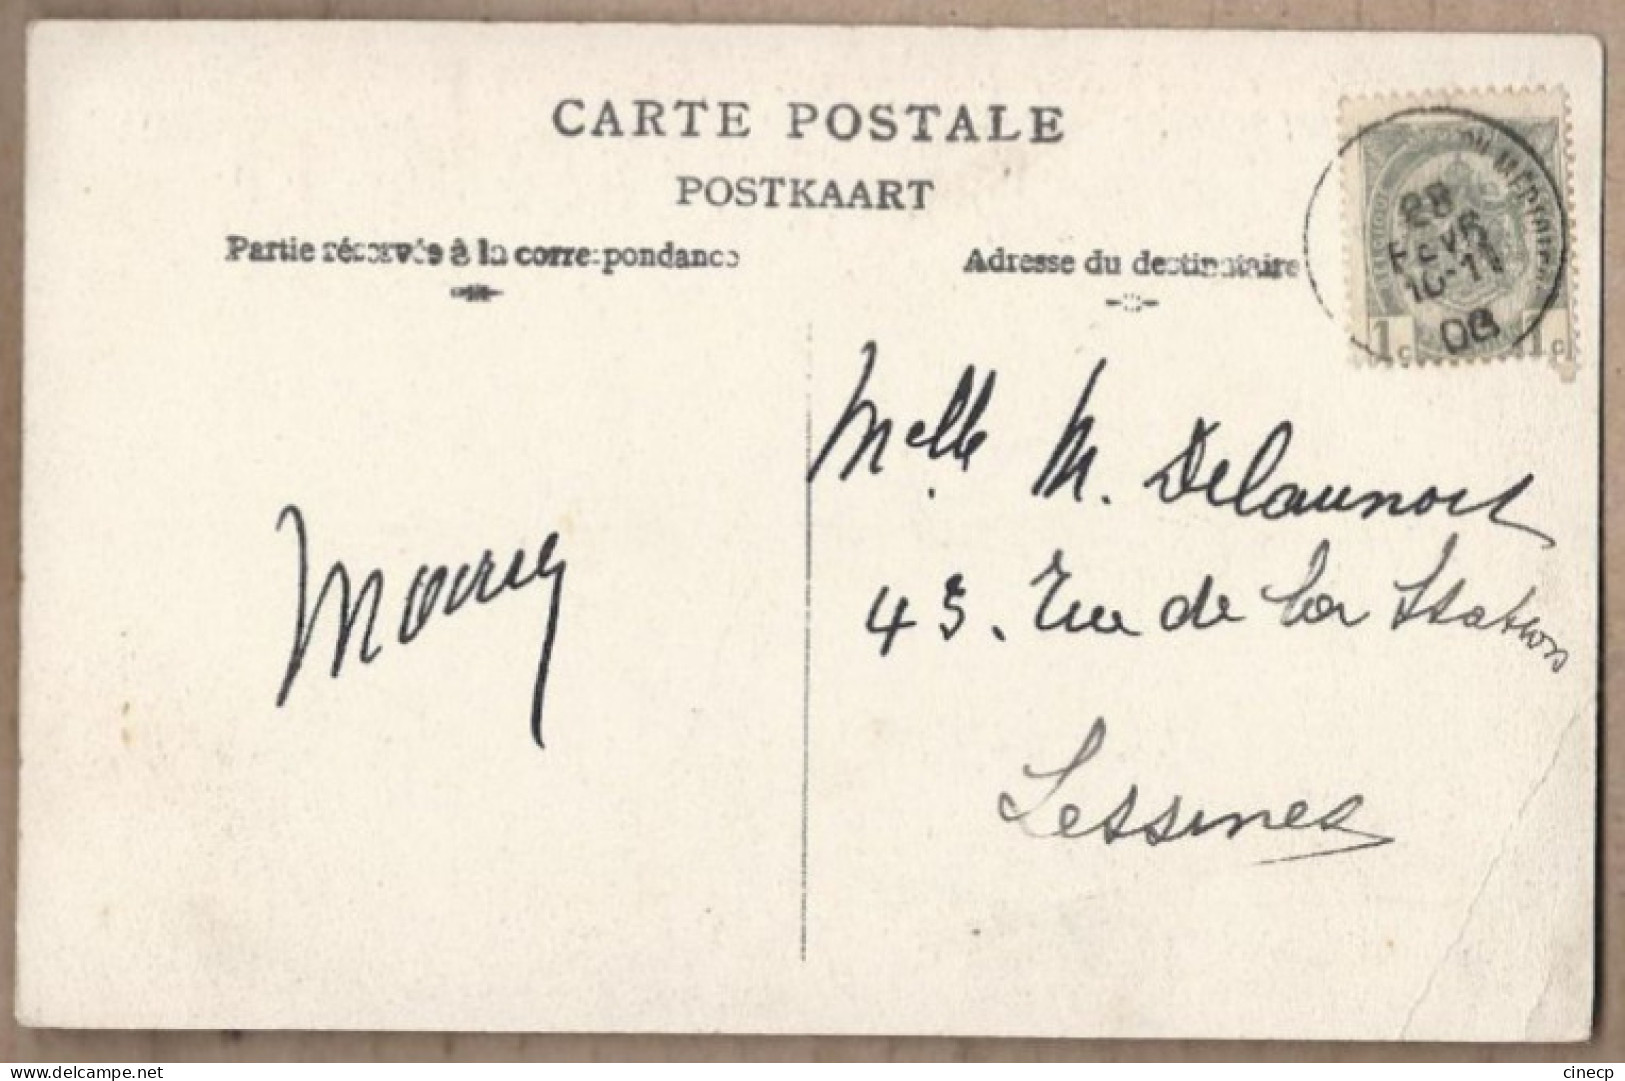 CARTE POSTALE
POSTKAART
Partie réservée à la correspondance
Adresse du destinataire
28
FEVR
10-11
08
1c 1c
Melle M. Delaunois
43. Rue de la Station
Lessines
delcampe.net
cinecp